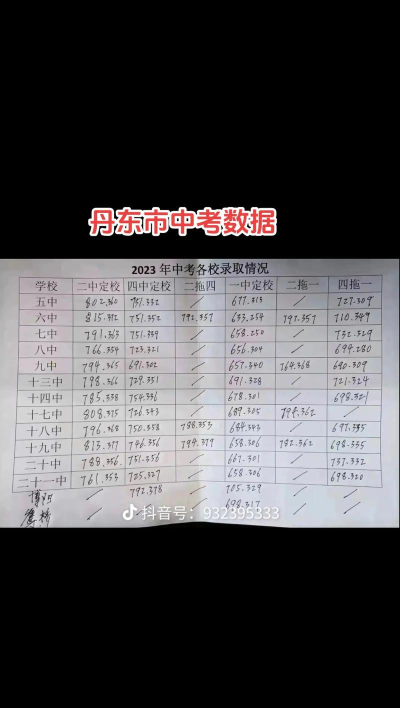 丹东市中考数据
2023 年中考各校录取情况
学校 二中定校 四中定校 二拖四 一中定校 二拖一 四拖一
五中 802.360 751.332 / 677.313 / 727.309
六中 815.372 751.352 792.357 653.254 797.357 710.349
七中 791.363 751.339 / 658.250 / 732.329
八中 766.354 723.321 / 656.304 / 694.280
九中 794.365 691.302 / 657.340 764.368 690.309
十三中 798.366 729.351 / 691.328 / 721.324
十四中 785.338 754.336 / 678.301 / 698.321
十七中 808.375 726.343 / 689.305 794.362 /
十八中 796.368 750.358 788.353 684.343 / 697.335
十九中 813.377 746.356 794.379 658.306 782.362 698.335
二十中 788.356 751.356 / 667.301 / 737.332
二十一中 761.353 725.327 / 658.306 / 698.320
/ 792.378 / 705.329 / /
/ / / 698.317 / /
抖音号：932395333